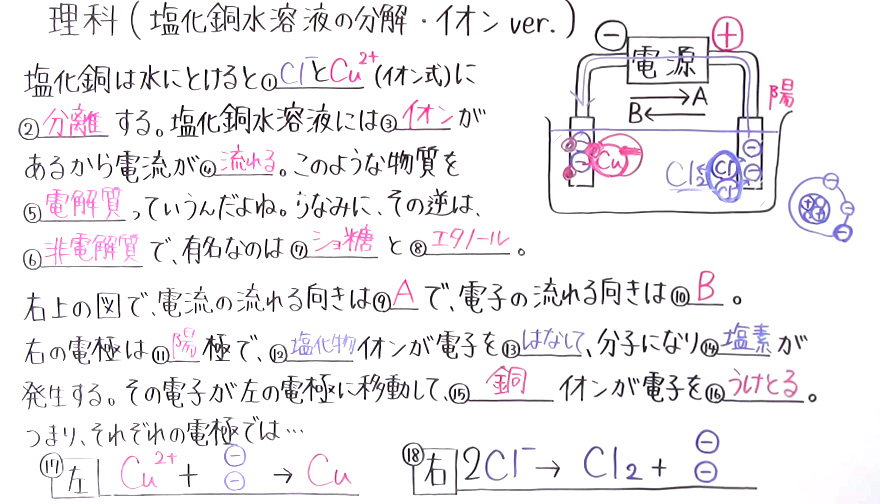 理科(塩化銅水溶液の分解・イオンver.)
塩化銅は水にとけると①Cl⁻とCu²⁺(イオン式)に
②分離する。塩化銅水溶液には③イオンが
あるから電流が④流れる。このような物質を
⑤電解質っていうんだよね。ちなみに、その逆は、
⑥非電解質で、有名なのは⑦ショ糖と⑧エタノール。
右上の図で、電流の流れる向きは⑨Aで、電子の流れる向きは⑩B。
右の電極は⑪陽極で、⑫塩化物イオンが電子を⑬はなして、分子になり⑭塩素が
発生する。その電子が左の電極に移動して、⑮銅イオンが電子を⑯うけとる。
つまり、それぞれの電極では…
⑰左 Cu²⁺ + ⊖ ⊖ → Cu
⑱右 2Cl⁻ → Cl₂ + ⊖ ⊖
⊖ 電源 ⊕
陽
→A
B←
⊖ ⊖ Cu
Cl₂ Cl Cl ⊖ ⊖